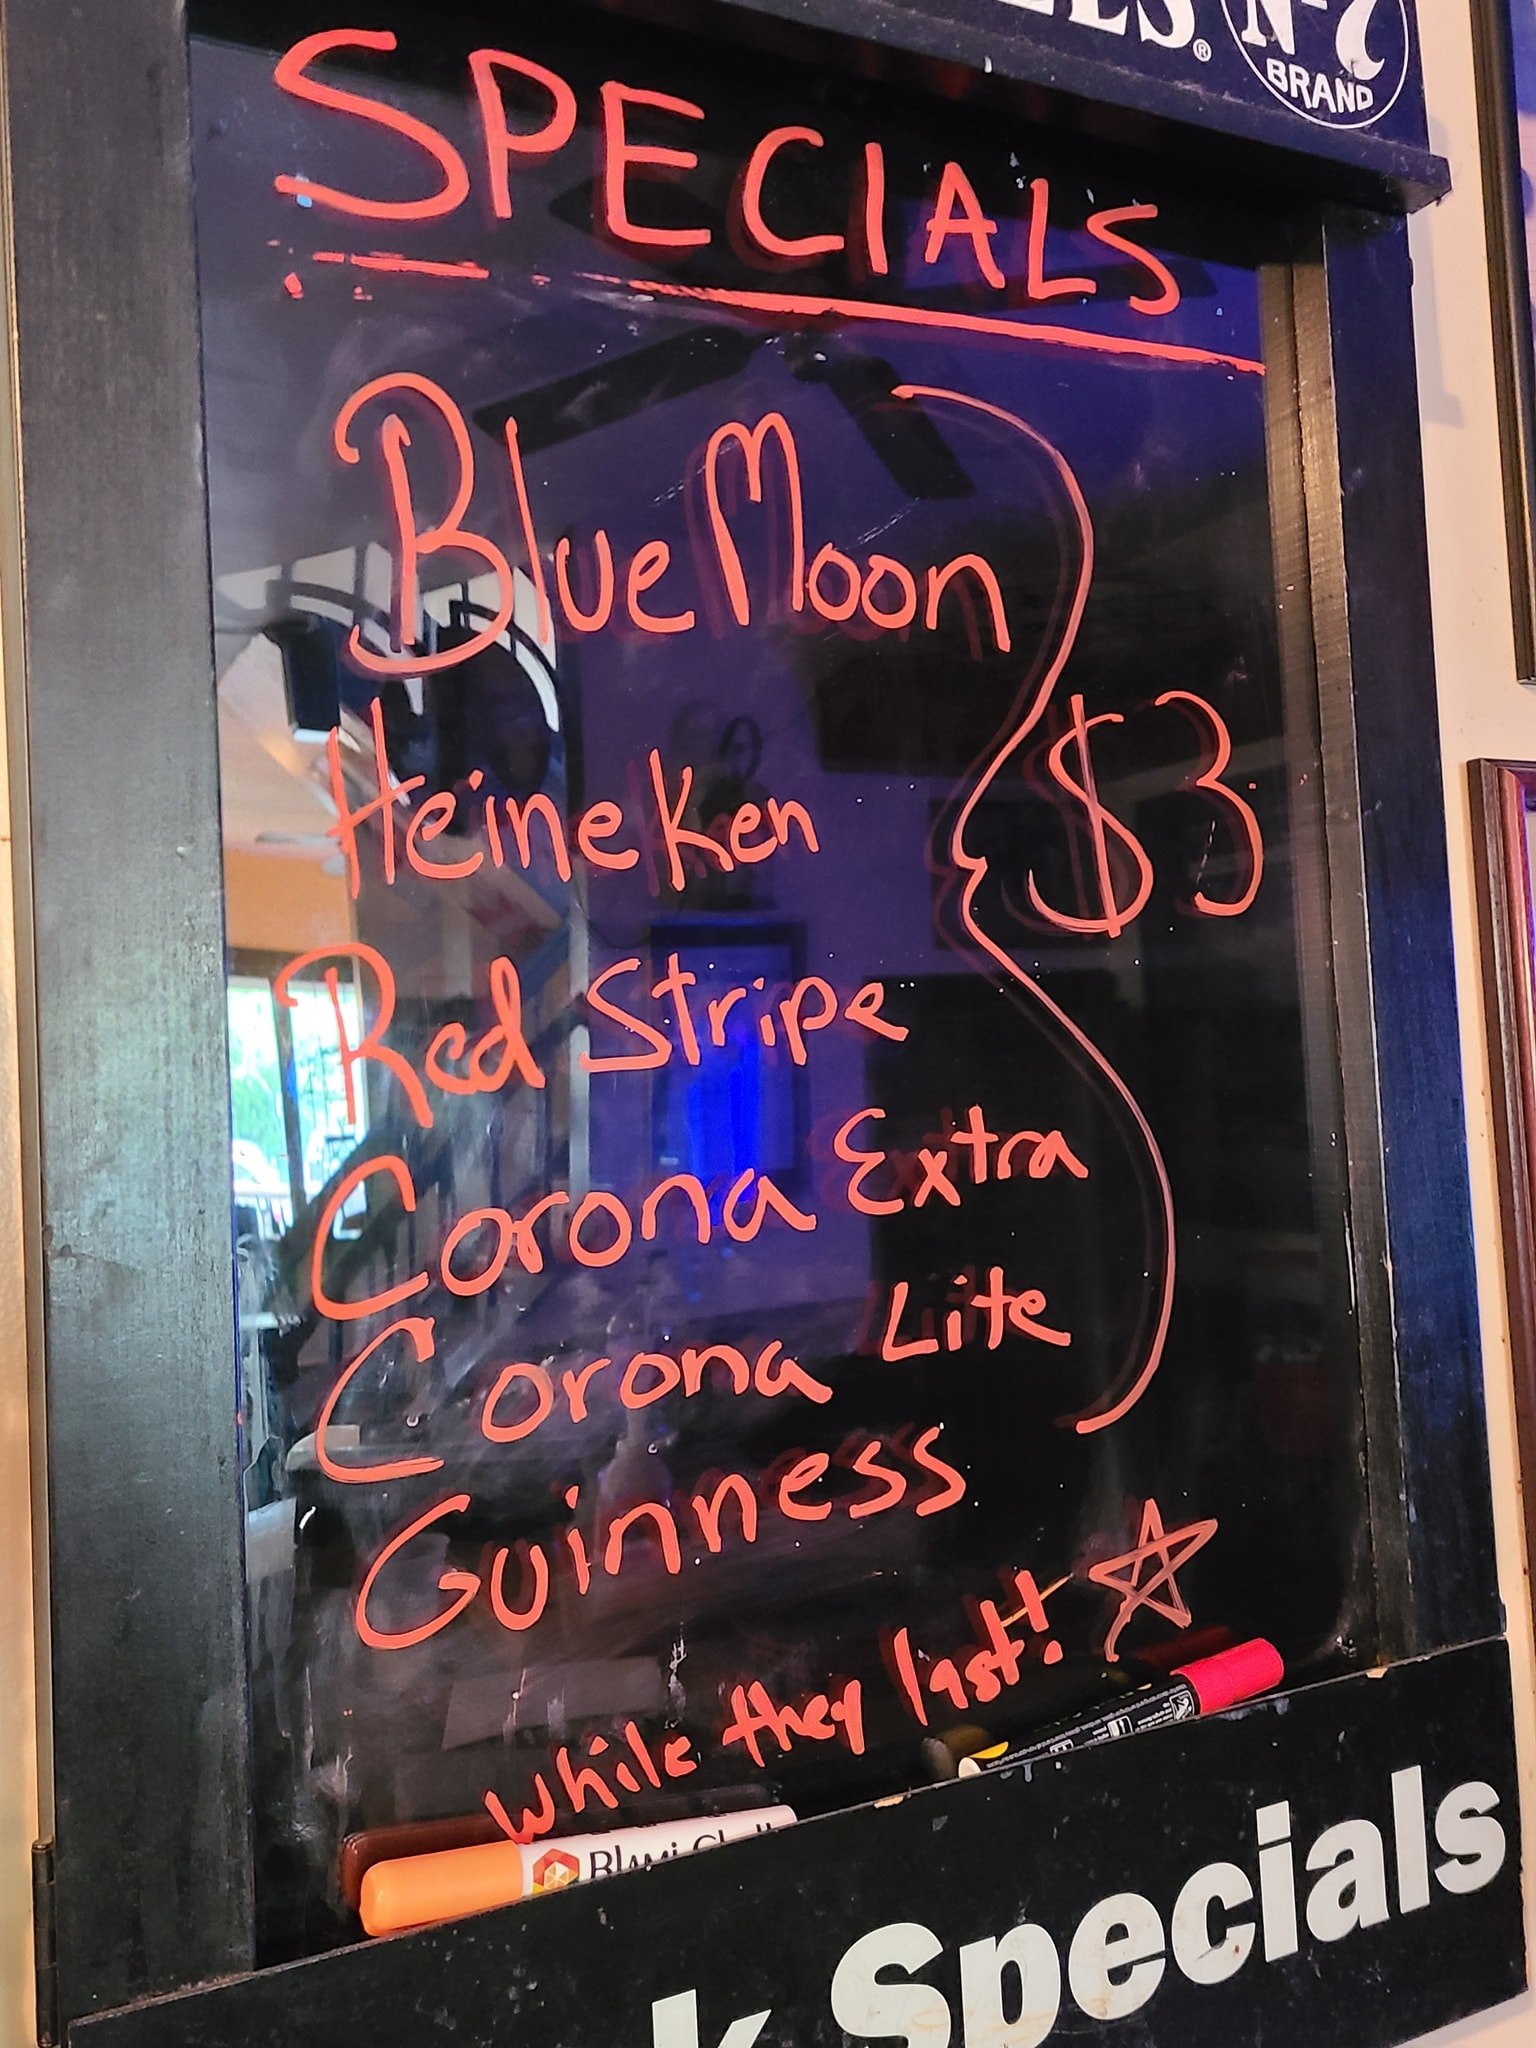 N-7
BRAND
SPECIALS
Blue Moon
Heineken
$3
Red Stripe
Corona Extra
Corona Lite
Guinness
while they last!
Specials